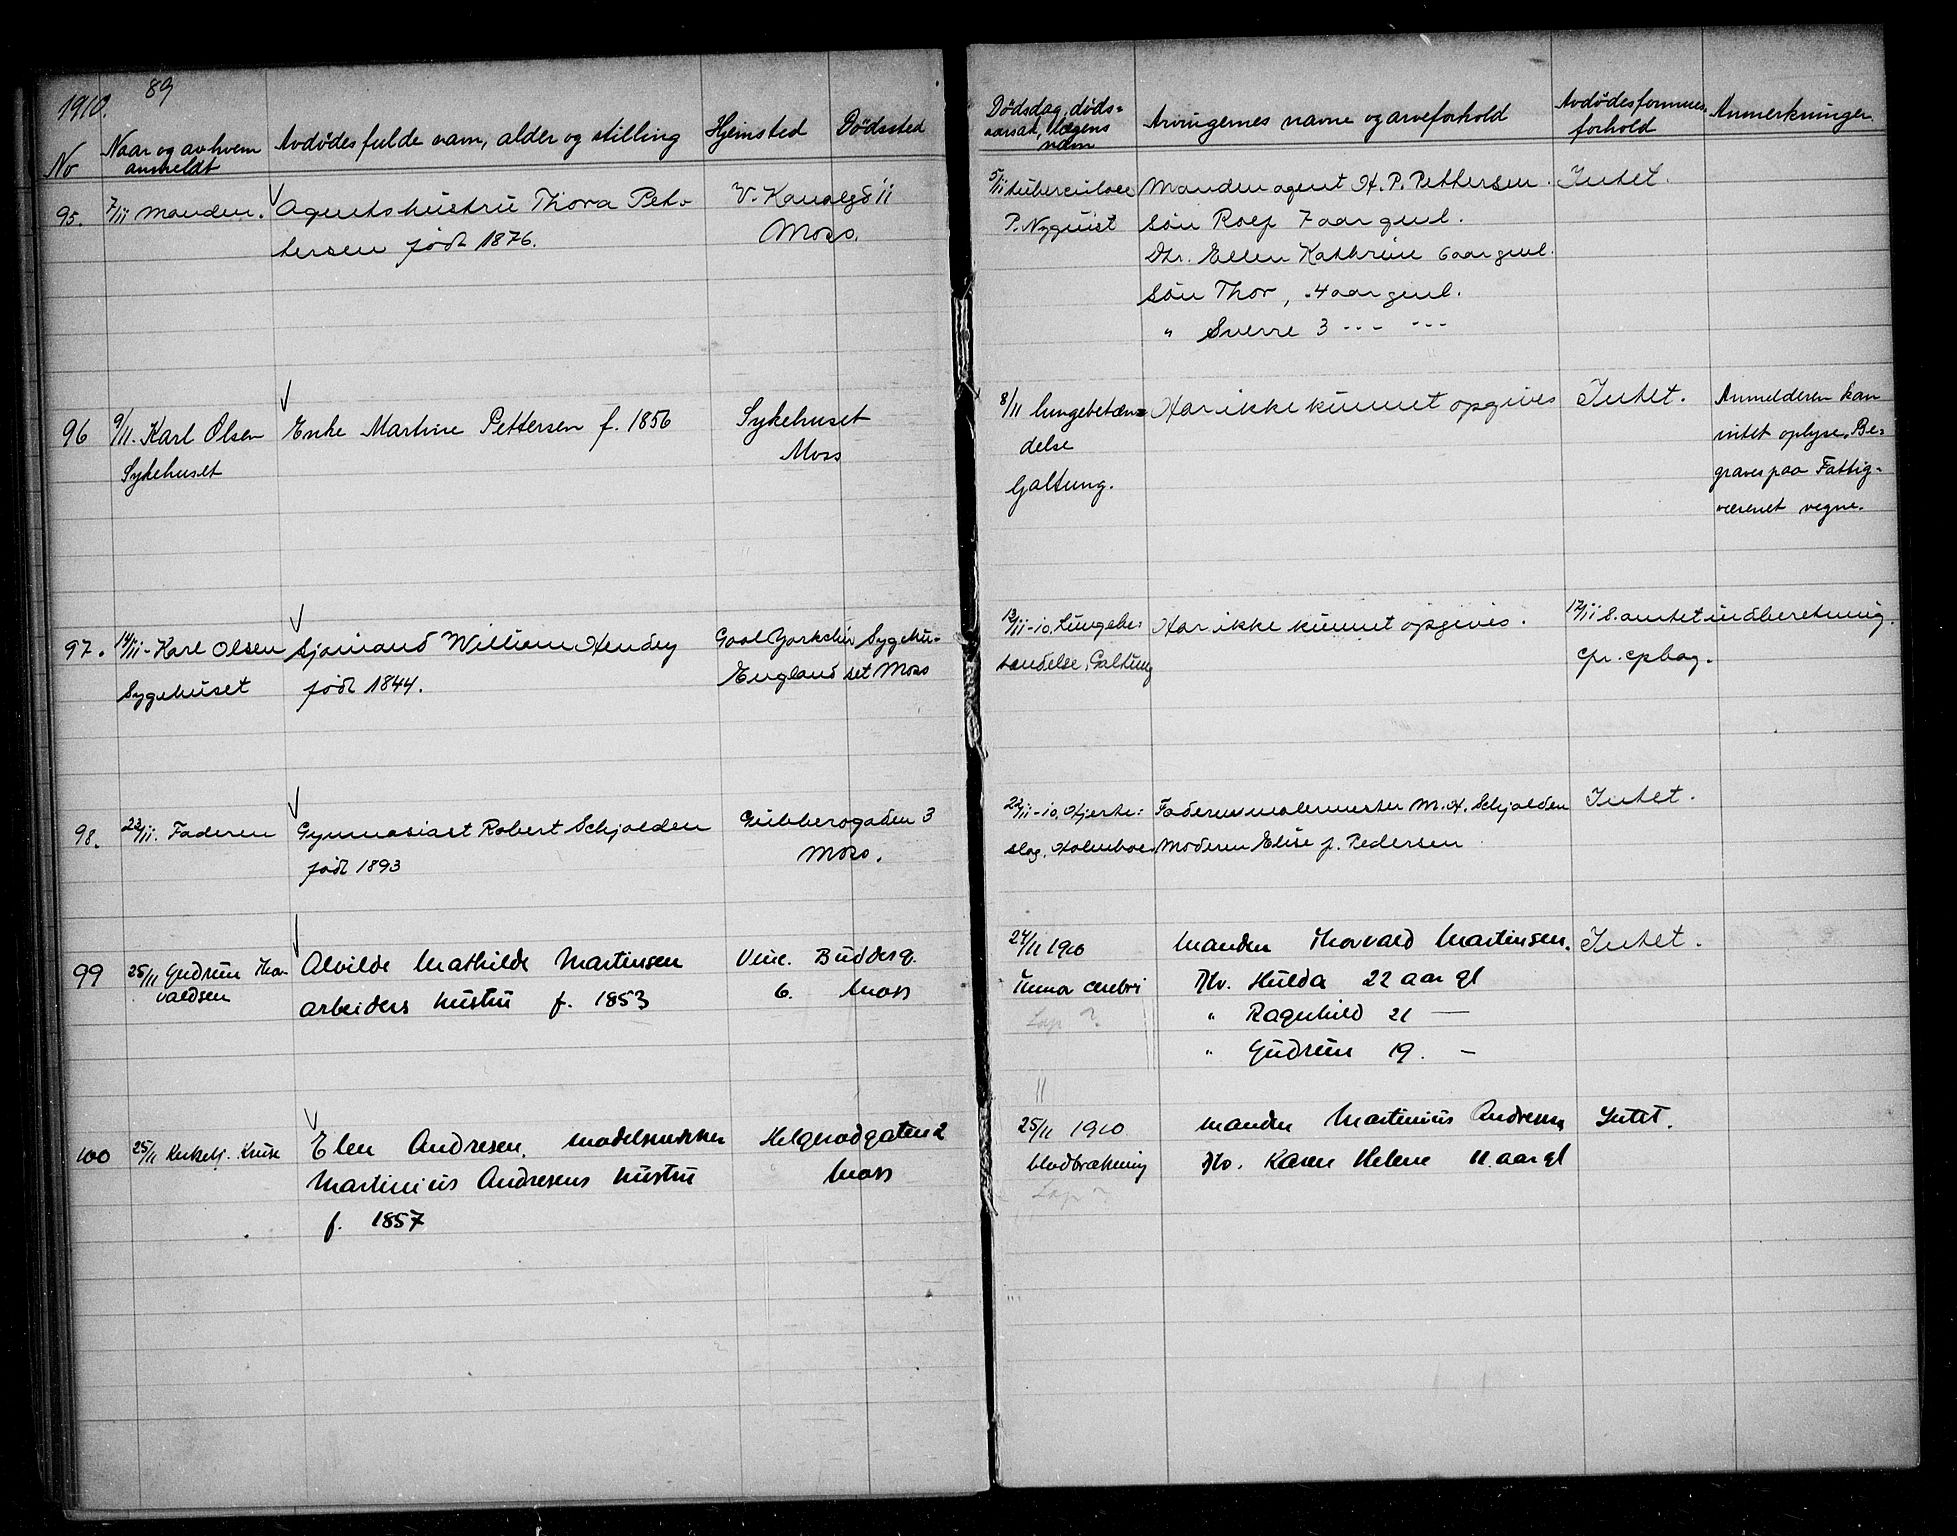 1910. 89
No
Naar og av hvem anmeldt
Avdødes fulde navn, alder og stilling
Hjemsted
Dødssted
Dødsdag, døds=
aarsak, lægens
navn
Arvingernes navne og arveforhold
Avdødes formues=
forhold
Anmerkninger
95. 7/11 Manden.
Agentshustru Thora Pet-
tersen født 1876.
V. Kanalgd 11
Moss.
5/11 tuberculose
P. Nyquist
Manden agent H. P. Pettersen.
Søn Rolf 7 aar gml.
Dtr. Ellen Kathrine 6 aar gml.
Søn Thor, 4 aar gml.
" Sverre 3 --- ---
Intet.
96 9/11. Karl Olsen
Sykehuset
Enke Martine Pettersen f. 1856
Sykehuset
Moss
8/11 lungebetæn=
delse
Galtung.
Har ikke kunnet opgives
Intet.
Anmelderen kan
intet oplyse. Be=
graves paa Fattig=
væsenet vegne.
97. 14/11 - Karl Olsen
Sygehuset
Sjømand William Hendry
født 1844.
Gool Yorkshire
England
Sygehu-
set Moss
13/11-10. Lungebe=
tændelse, Galtung
Har ikke kunnet opgives.
17/11 S. amtet indberetning.
cfr. cpbog.
98. 22/11. Faderen
Gymnasiast Robert Schjolden
født 1893
Gubberogaden 3
Moss.
22/11-10. Hjerte=
slag. Holmboe
Faderen malermester M. H. Schjolden
Moderen Elise f. Pedersen
Intet.
99 25/11 Gudrun Thor-
valdsen
Alvilde Mathilde Martinsen
arbeiders hustru f. 1853
Vinc. Buddesg.
6. Moss
24/11 1910
Tumor cerebri
Manden Thorvald Martinsen.
Dtr. Hulda 22 aar gl
" Ragnhild 21 —
" Gudrun 19. —
Intet.
100 25/11 Kirketj. Kruse
Elen Andresen, modelsnekker
Martinius Andresens hustru
f. 1857
Helgerødgaten 2
Moss
25/11 1910
blodbrækning
Manden Martinius Andresen
Dtr. Karen Helene 11 aar gl
Intet.